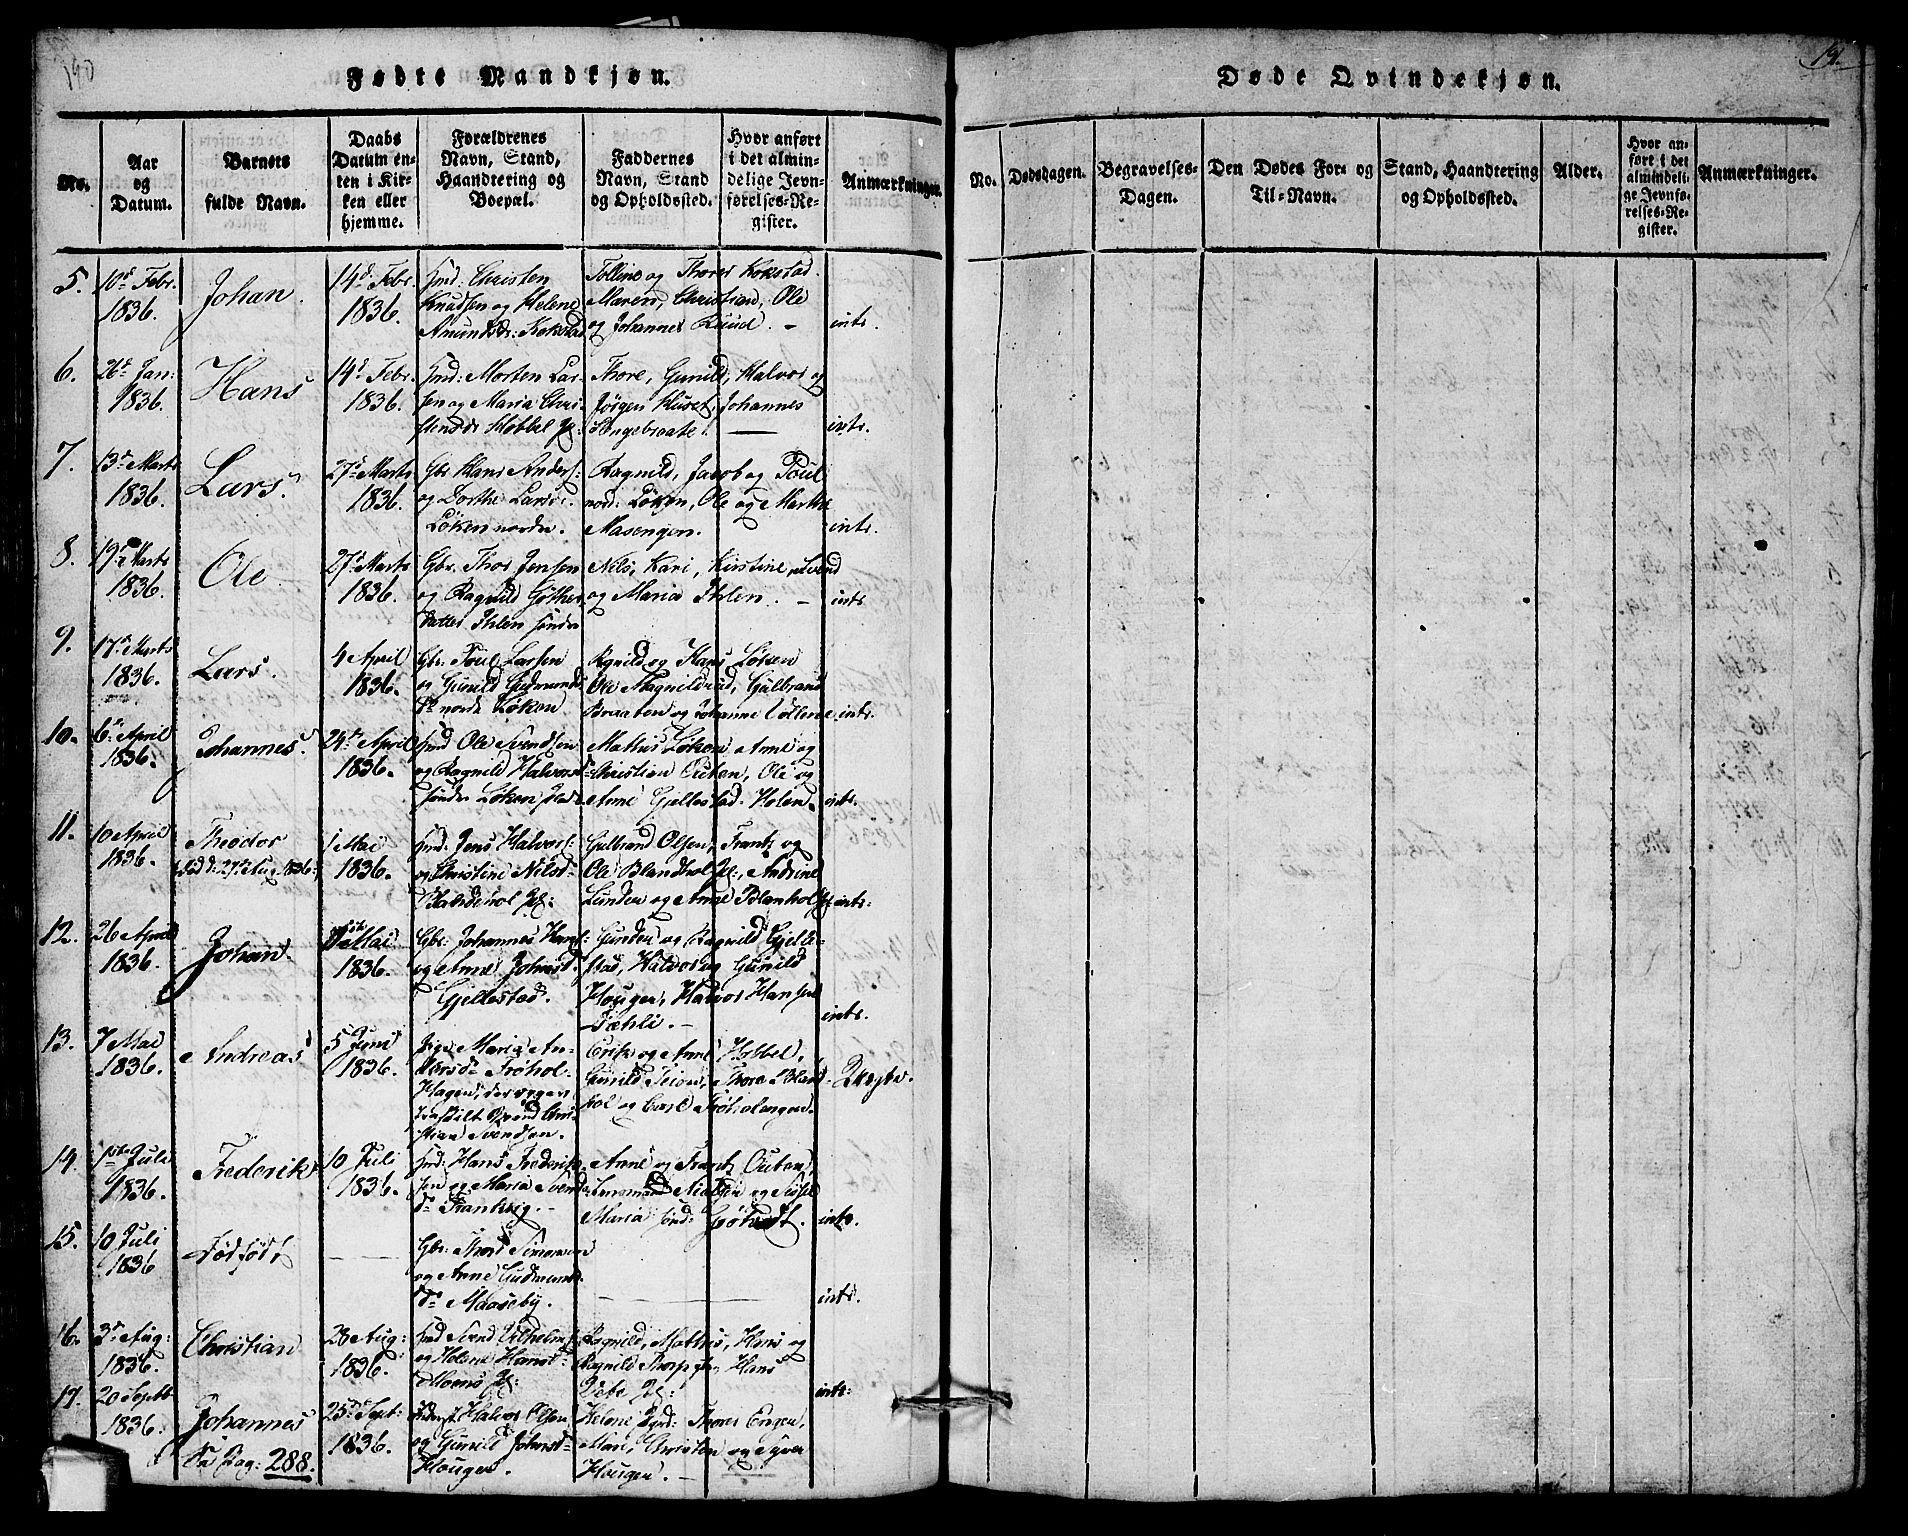 190
Fødte Mandkjøn.
No.
Aar
og
Datum.
Barnets
fulde Navn.
Daabs
Datum en-
ten i Kir-
ken eller
hjemme.
Forældrenes
Navn, Stand,
Haandtering og
Boepæl.
Faddernes
Navn, Stand
og Opholdssted.
Hvor anført
i det almin-
delige Jevn-
førelses-Re-
gister.
Anmærkninger.
5.
10d Febr.
1836.
Johan.
14d. Febr.
1836.
Christen
Knudsen og Helene
Anundsdr: Kokstad
Tolline og Thores Kokstad.
Maren, Christian, Ole
og Johannes Ruud. —
intr.
6.
26d Jan:
1836.
Hans
14d. Febr.
1836.
Morten Lar-
sen og Maria Chri-
stensdr Høbbel Pl:
Thore, Gunild, Halvor og
Jørgen Huset, Johannes
Engebraate. —
intr.
7.
13d Marts
1836.
Lars.
27d Marts
1836.
Gbr Hans Anders:
og Dorthe Larsd:
Løken nordre.
Ragnild, Jacob og Poul
nord: Løken, Ole og Marthe
Masengen.
intr.
8.
19d Marts
1836.
Ole
27d Marts
1836.
Gbr. Thor Jensen
og Ragnild Gother-
datter Ihlen søndre
Nils, Kari, Kirstine, Svend
og Maria Ihlen. —
intr
9.
17d Marts
1836.
Lars.
4 April
1836.
Gbr: Poul Larsen
og Gunild Gudmunds
dr nordr Løken.
Ragnild og Hans Løken
Ole Magnildrud, Gulbrand
Braaten og Johanne Vollene.
intr.
10.
6te April
1836.
Johannes.
24de April
1836.
Ole Svendsen
og Ragnild Halvorsd:
søndre Løken Plads
Mathis Løken Anne og
Christian Outen, Ole og
Anne Gjellestad. Holen.
intr.
11.
10 April
1836.
Theodor
død d: 27de Aug. 1836.
1 Mai
1836.
Jens Halvors:
og Christine Nilsd:
Blandehol Pl:
Gulbrand Olsen, Frantz og
Ole Blandhol Pl:, Andrine
Lunder og Anne Blanhol
intr.
12.
26 April
1836.
Johan.
Mai
1836.
Gbr: Johannes Hans:
og Anne Johnsd:
Gjellestad.
Gunder og Ragnild Gjelle-
stad, Halvor og Gunild
Hougen, Halvor Hansen
Dæhli. —
intr.
13.
7 Mai
1836.
Andreas
5 Juni
1836.
Pige Maria An-
dersdr Frøhol-
Hagen,
Svend Chri-
stian Svendsen.
Erik og Anne Høbbel,
Gunild Teien, Thore Bland-
hol og Carl Frøholengen.
2 uægte.
14.
1ste Juli
1836.
Frederik
10 Juli
1836.
Hans Frederik-
sen og Maria Svends-
dr Frankrig. —
Anne og Frantz Outen,
Nielsen og Sissel
Maria sønd:
intr.
15.
10 Juli
1836
Dødfødt
—
Gbr: Thord Simonsen
og Anne Gudmunds
dr Maaseby.
—
intr.
16.
3d Aug:
1836.
Christian
28 Aug:
1836.
Svend Vilhelms:
og Helene Hansd:
Moens Pl:
Ragnild, Mathis, Hans og
Ragnild Thorp Pl:, Hans
Vebe Pl:
intr:
17.
20 Septbr
1836.
Johannes
Fra Pag: 288.
25de Sept:
1836.
Halvor Olsen
og Gunild Johnsd:
Hougen.
Helene Thores Engen,
Mari, Christen og Syver
Hougen. —
191.
Døde Qvindekjøn.
No.
Dødsdagen.
Begravelses-
Dagen.
Den Dødes For- og
Til-Navn.
Stand, Haandtering
og Opholdssted.
Alder.
Hvor an-
ført i det
almindeli-
ge Jevnfø-
relses-Re-
gister.
Anmærkninger.